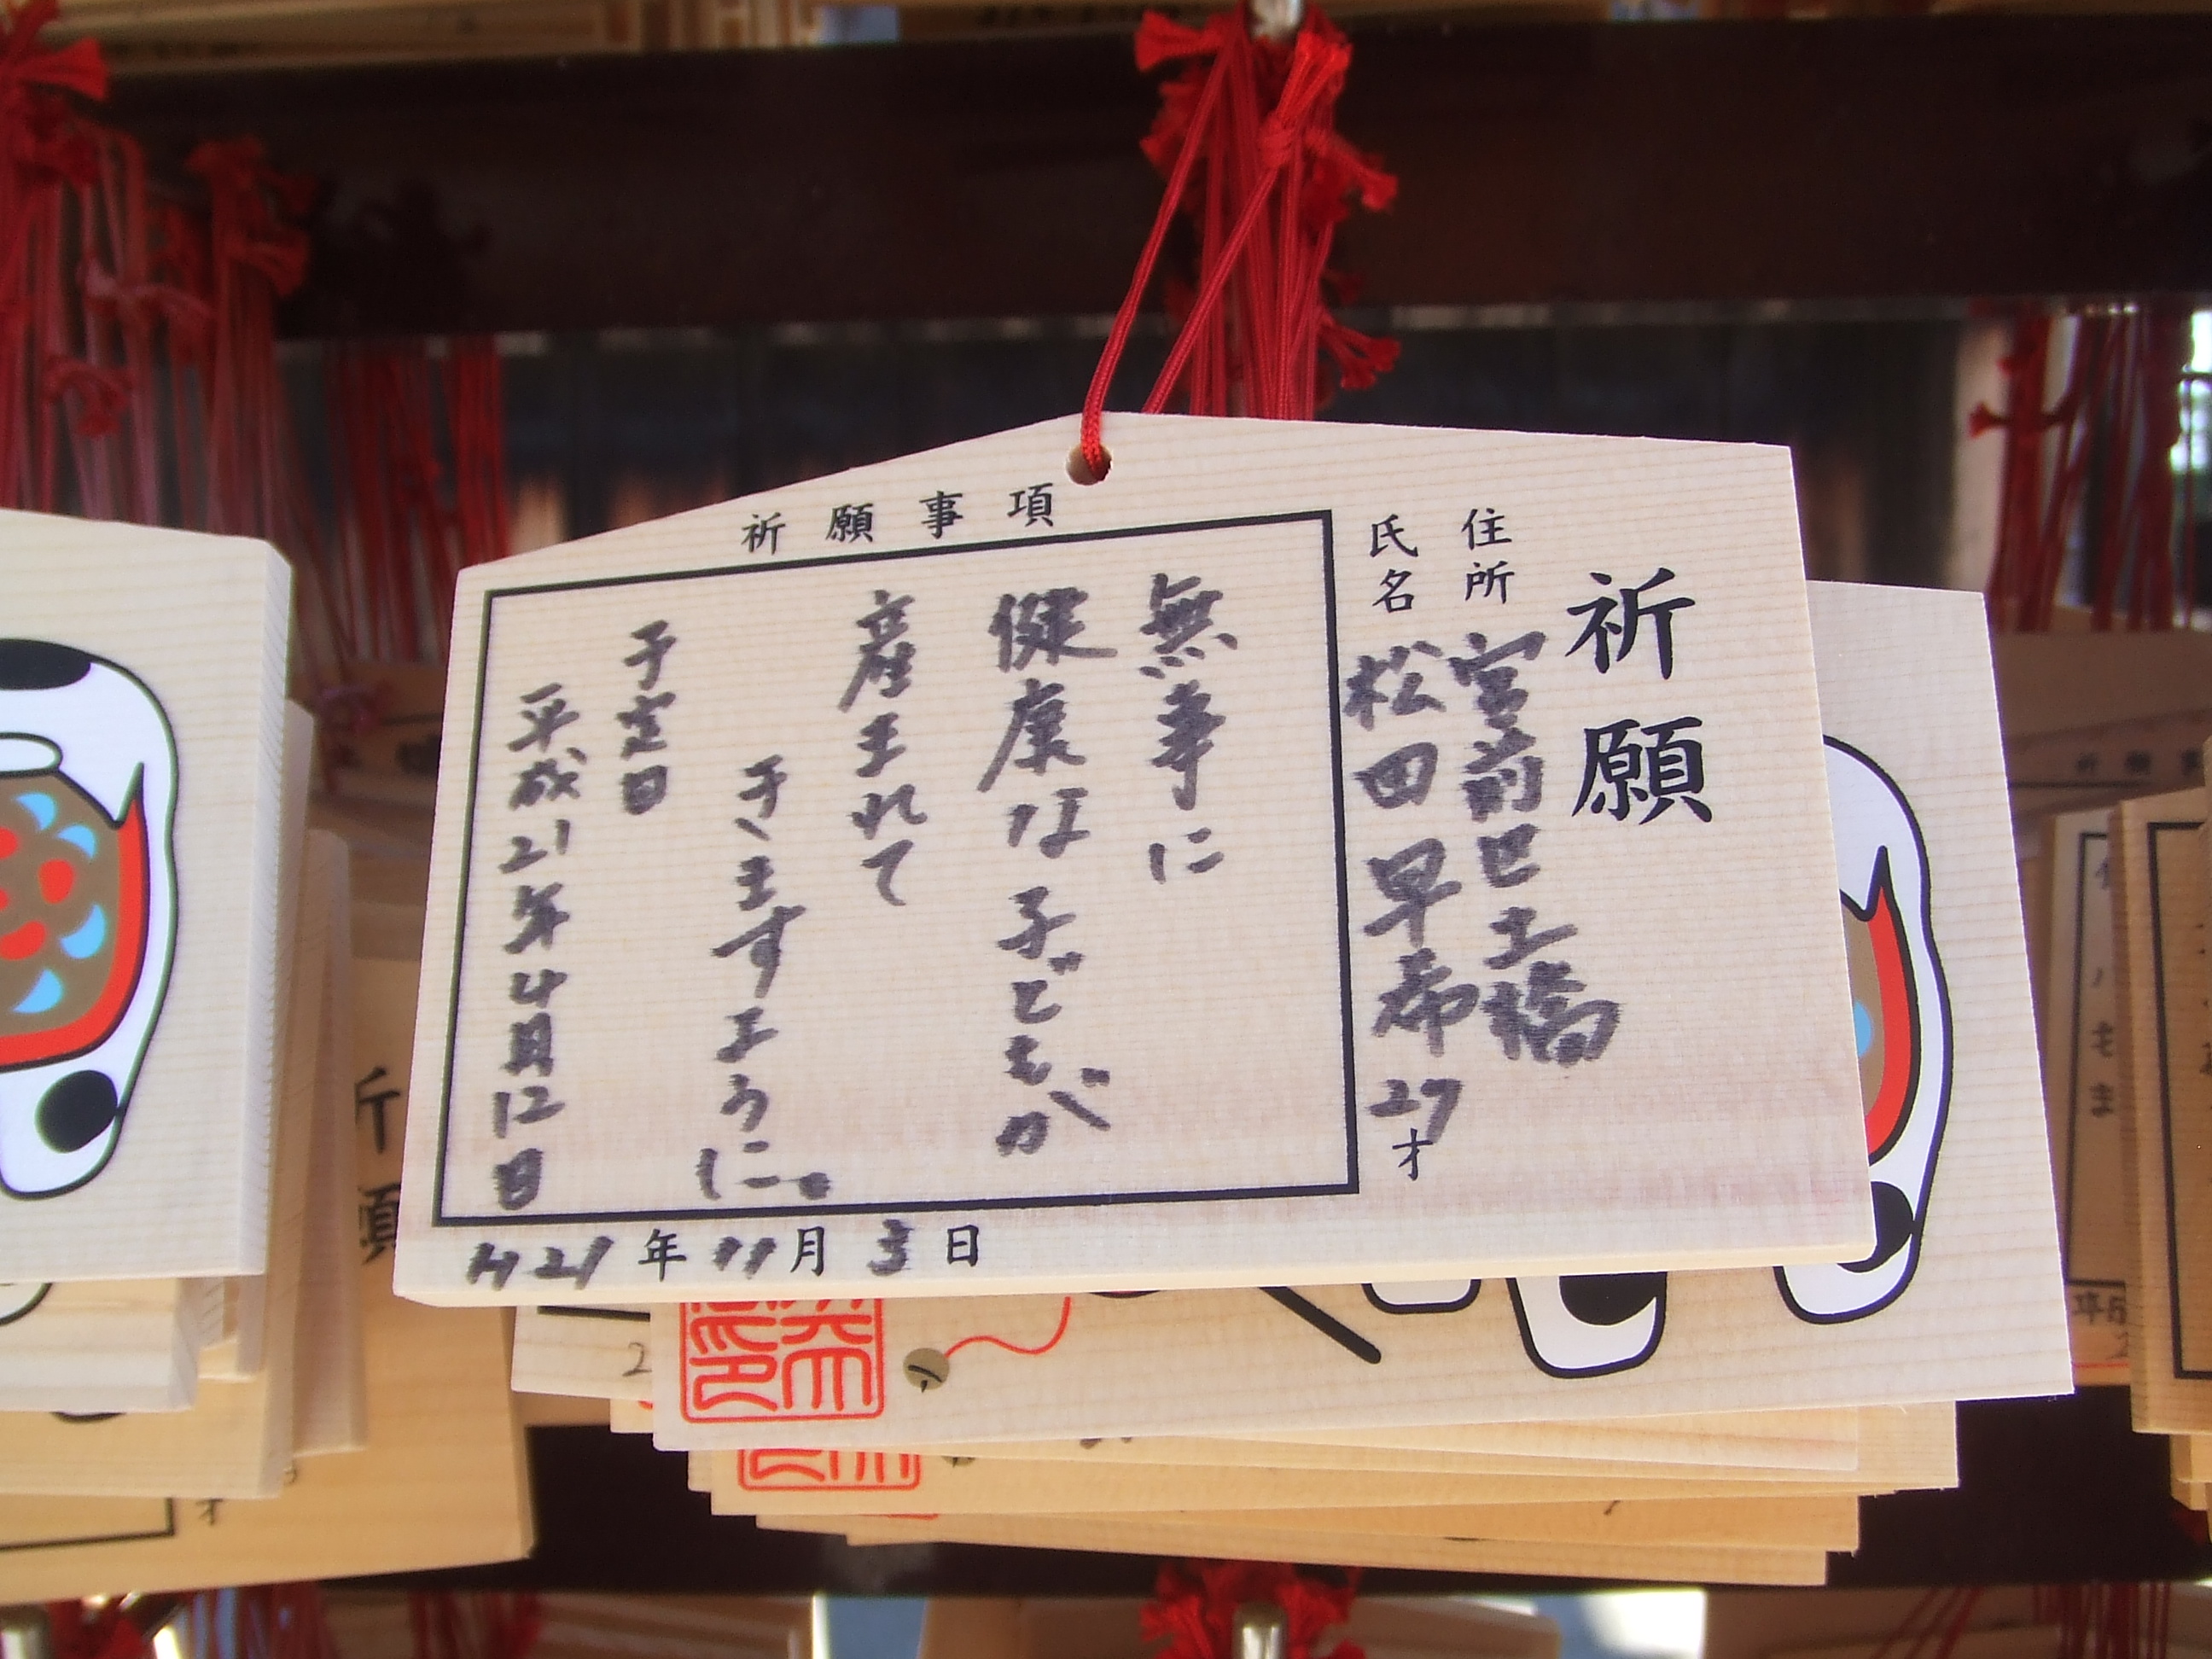 祈願
住所 宮前区土橋
氏名 松田早希 27才
祈願事項
無事に
健康な子どもが
産まれて
きますように。
予定日
平成21年4月12日
H21年11月3日
祈願
才